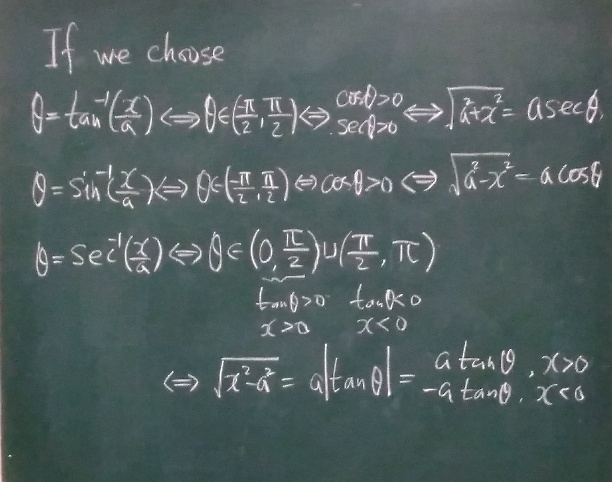 If we choose
θ = tan⁻¹(x/a) ⟺ θ∈(-π/2, π/2) ⟺ cosθ>0 secθ>0 ⟺ √(a²+x²) = a secθ,
θ = sin⁻¹(x/a) ⟺ θ∈(-π/2, π/2) ⟺ cosθ>0 ⟺ √(a²-x²) = a cosθ
θ = sec⁻¹(x/a) ⟺ θ ∈ (0, π/2) ∪ (π/2, π)
tanθ>0 tanθ<0
x>0 x<0
⟺ √(x²-a²) = a|tanθ| = a tanθ, x>0
-a tanθ. x<0